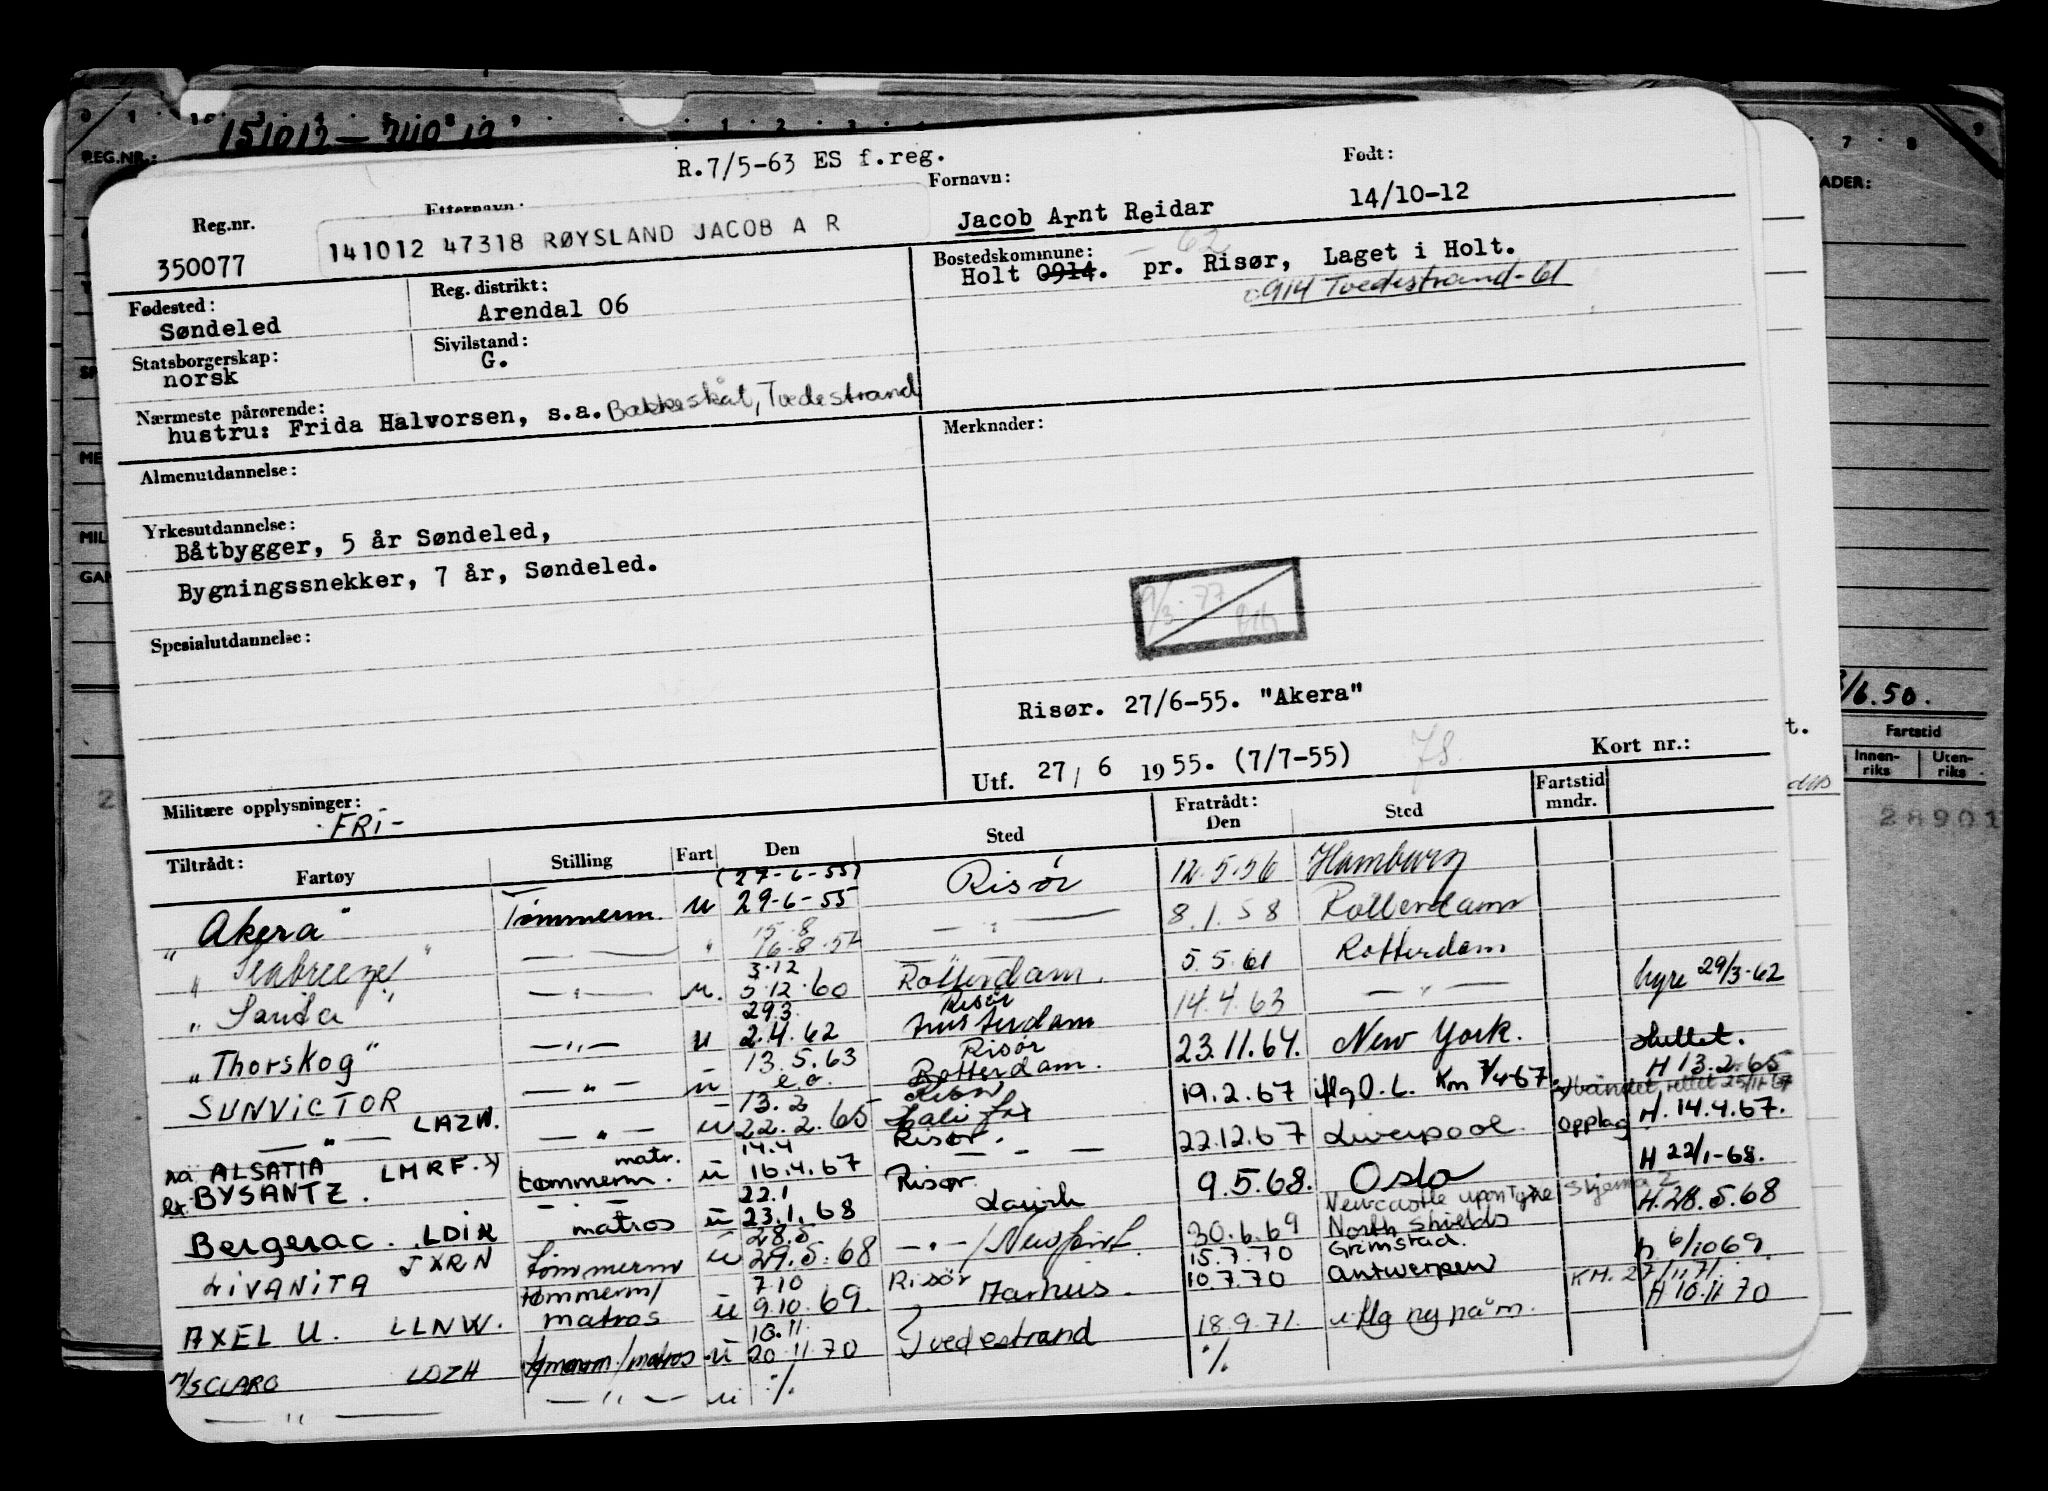 151012 — 740 12
REG.NR.:
R.7/5-63 ES f.reg.
Reg.nr.
Etternavn:
Fornavn:
Født:
350077
141012 47318 RØYSLAND JACOB A R
Jacob Arnt Reidar
14/10-12
Fødested:
Søndeled
Reg. distrikt:
Arendal 06
Bostedskommune: — 62
Holt 0914. pr. Risør, Laget i Holt.
0914 Tvedestrand-61
Statsborgerskap:
norsk
Sivilstand:
G.
Nærmeste pårørende:
hustru: Frida Halvorsen, s.a. Bakkeskåt, Tvedestrand
Almenutdannelse:
Merknader:
Yrkesutdannelse:
Båtbygger, 5 år Søndeled,
Bygningssnekker, 7 år, Søndeled.
Spesialutdannelse:
9/3-77
Risør. 27/6-55. "Akera"
Utf. 27/6 1955. (7/7-55)
Kort nr.:
Militære opplysninger:
-FRI-
Tiltrådt:
Fartøy Stilling Fart Den Sted
Fratrådt:
Den Sted
Fartstid
mndr.
(27-6-55)
"Akera" Tømmerm. u 29-6-55 Risør 12.5.56 Hamburg
15.8
"Seabreeze" — " — " 16-8-57 — " — 8.1.58 Rotterdam
3.12
"Sarita" — " — u. 5.12.60 Rotterdam. 5.5.61 Rotterdam
29.3 Risør
"Thorskog" — " — u 2.4.62 Amsterdam 14.4.63 — " — hyre 29/3-62
13.5.63 Risør
SUNVICTOR — " — u e.o. Rotterdam. 23.11.64. New York. sluttet.
13.2 Risør H 13.2.65
— " — LAZW. — " — u 22.2.65 Halifax 19.2.67 iflg O.L. Km 7/4-67
14.4 Risør. H. 14.4.67.
na. ALSATIA LMRF. matr. 16.4.67 — " — 22.12.67 Liverpool. opplag
ex. BYSANTZ. tømmerm. u
22.1 Risør H 22/1-68.
Bergerac. LDIK — matros u 23.1.68 Larvik 9.5.68. Oslo
28.5 Newcastle upon Tyne skjema 2 H. 28.5.68
VIVANITA JXRN Tømmerm u 29.5.68 — " — / Newport 30.6.69 North Shields
7.10 Risør 15.7.70 Grimstad. h 6/10 69.
AXEL U. LLNW. tømmerm/ matros u 9.10.69. Aarhus. 10.7.70 Antwerpen KM. 27/11.71.
10.11 H 10.11 70
M/S CLARO LDZH tømmerm/matros u 20.11.70 Tvedestrand 18.9.71. iflg ny påm.
— " — — " — u ./. ./.
ADER:
/6.50.
Fartstid
Innen-
riks
Uten-
riks
28901